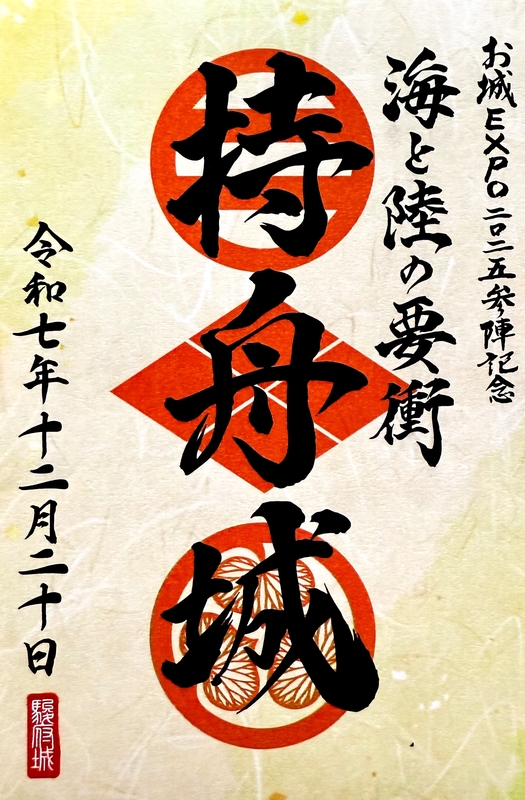 お城EXPO二〇二五参陣記念
海と陸の要衝
持舟城
令和七年十二月二十日
駿府城